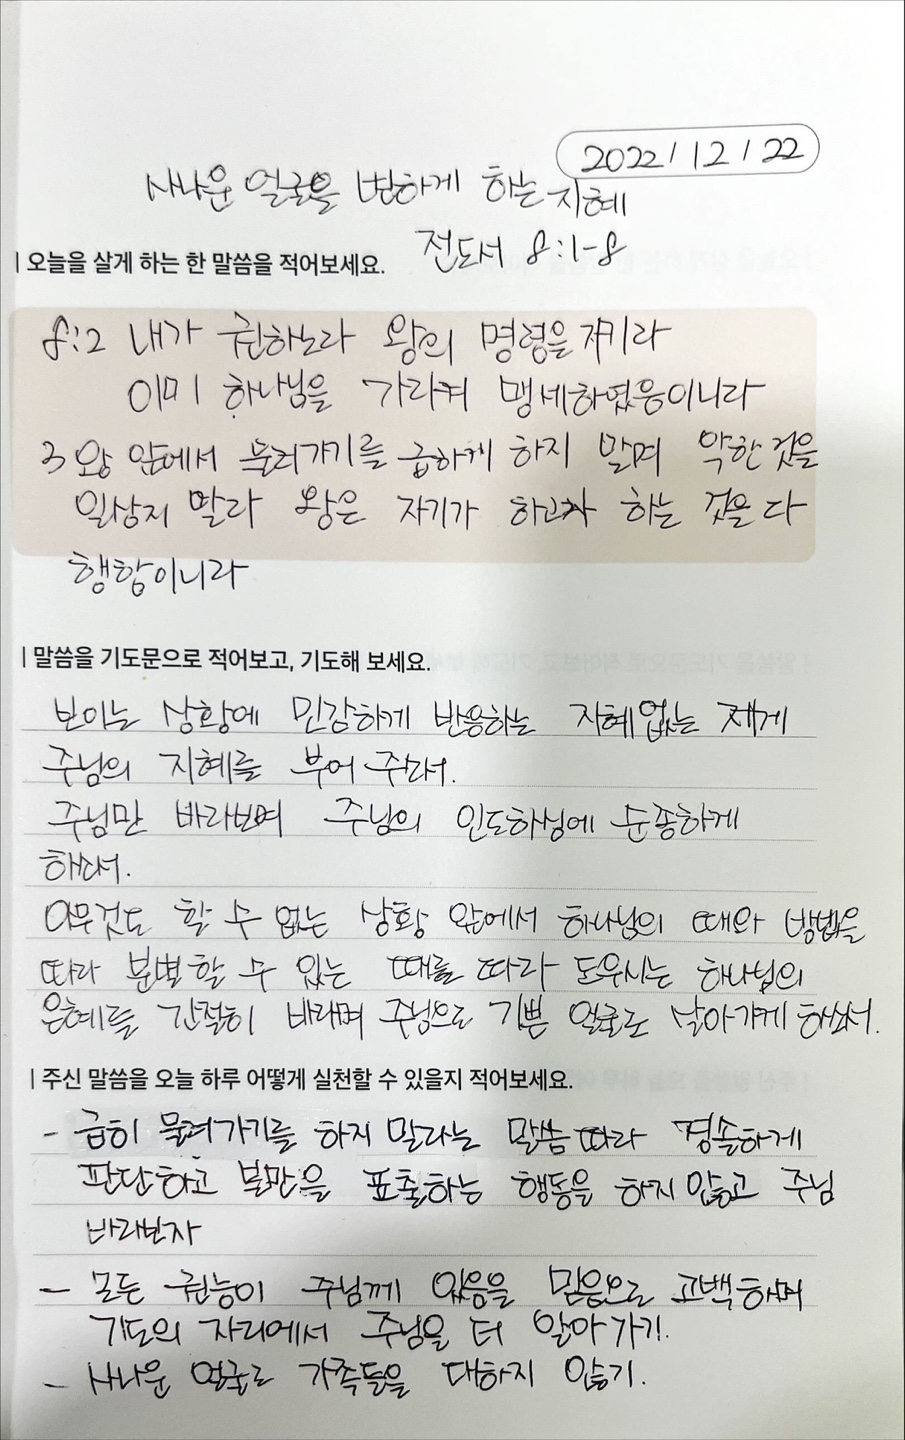 2022 / 12 / 22
사나운 얼굴을 변하게 하는 지혜
전도서 8:1-8
| 오늘을 살게 하는 한 말씀을 적어보세요.
8:2 내가 권하노라 왕의 명령을 지키라
이미 하나님을 가리켜 맹세하였음이니라
3 왕 앞에서 물러가기를 급하게 하지 말며 악한 것을
일삼지 말라 왕은 자기가 하고자 하는 것을 다
행함이니라
| 말씀을 기도문으로 적어보고, 기도해 보세요.
보이는 상황에 민감하게 반응하는 지혜없는 제게
주님의 지혜를 부어 주소서.
주님만 바라보며 주님의 인도하심에 순종하게
하소서.
아무것도 할 수 없는 상황 앞에서 하나님의 때와 방법을
따라 분별할 수 있는 때를 따라 도우시는 하나님의
은혜를 간절히 바라며 주님으로 기쁜 얼굴로 살아가게 하소서.
| 주신 말씀을 오늘 하루 어떻게 실천할 수 있을지 적어보세요.
- 급히 물러가기를 하지 말라는 말씀따라 경솔하게
판단하고 불만을 표출하는 행동을 하지 않고 주님
바라보자
- 모든 권능이 주님께 있음을 믿음으로 고백하며
기도의 자리에서 주님을 더 알아가기.
- 사나운 얼굴로 가족들을 대하지 않기.